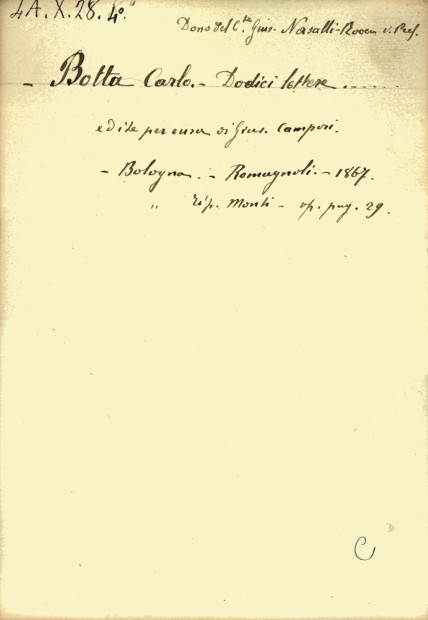 4A.X.28.4º
Dono del C.te Gius. Nasalli-Rocca
- Botta Carlo. - Dodici lettere ......
edite per cura di Gius. Campori.
- Bologna. - Romagnoli. - 1867.
" Tip. Monti - op. pag. 29.
C